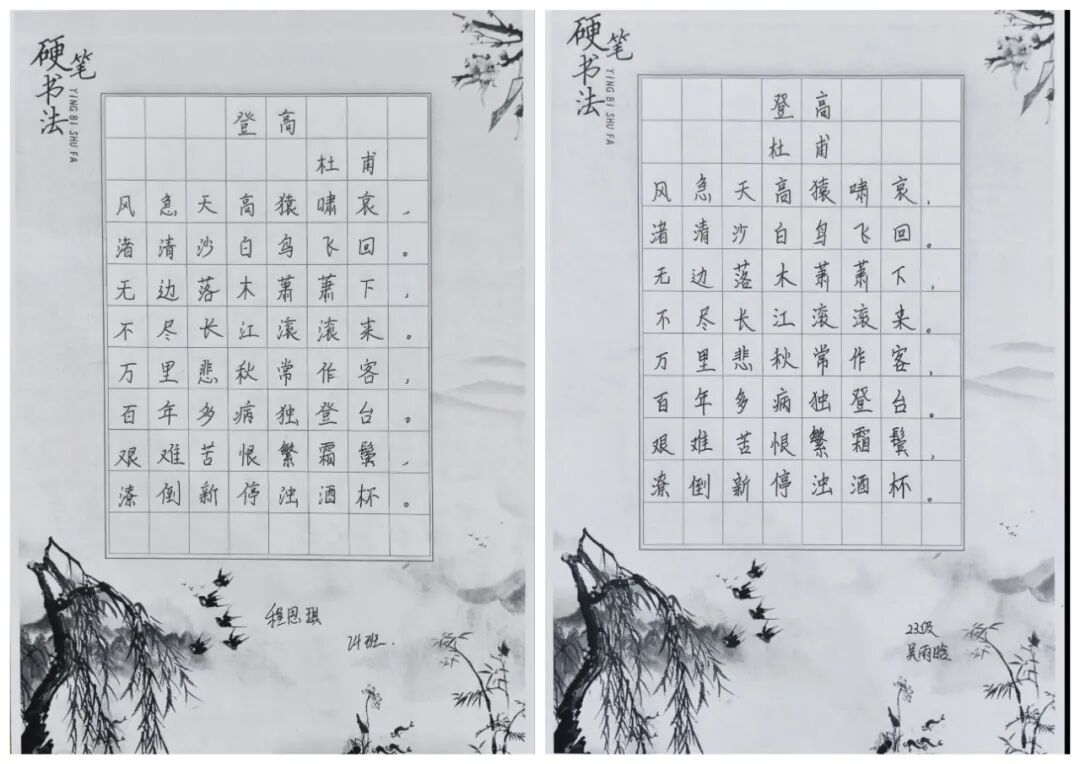 硬笔书法
YING BI SHU FA
登高
杜甫
风急天高猿啸哀，
渚清沙白鸟飞回。
无边落木萧萧下，
不尽长江滚滚来。
万里悲秋常作客，
百年多病独登台。
艰难苦恨繁霜鬓，
潦倒新停浊酒杯。
程恩琪
24班.
硬笔书法
YING BI SHU FA
登高
杜甫
风急天高猿啸哀，
渚清沙白鸟飞回。
无边落木萧萧下，
不尽长江滚滚来。
万里悲秋常作客，
百年多病独登台。
艰难苦恨繁霜鬓，
潦倒新停浊酒杯。
23级
吴雨晗